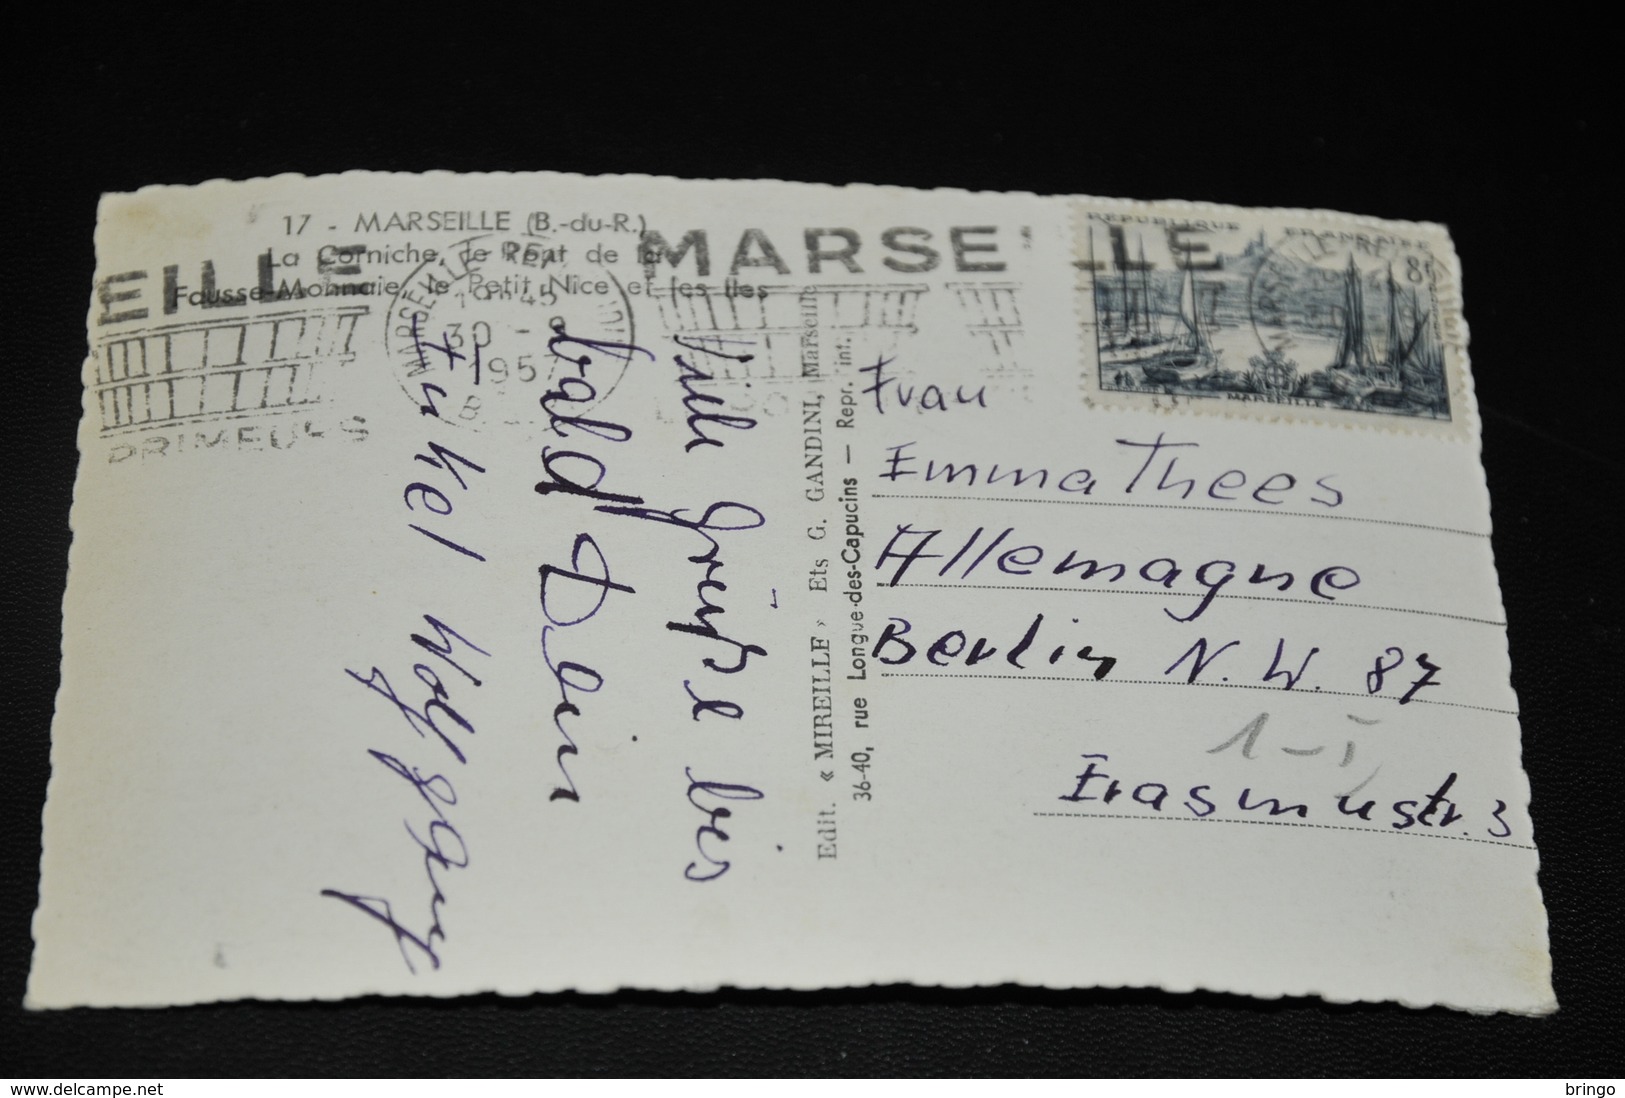 17 - MARSEILLE (B.-du-R.)
La Corniche, le Pont de la
Fausse-Monnaie, le Petit Nice et les Iles
EILLE
PRIMEURS
MARSEILLE
19h45
30 -
195
MARSEILLE
REPUBLIQUE FRANCAISE
8f
MARSEILLE
Viele Grüße bis
bald Dein
Enkel Wolfgang
Edit. « MIREILLE » Ets G. GANDINI, Marseille
36-40, rue Longue-des-Capucins — Repr. int.
Frau
Emma Thees
Allemagne
Berlin N.W. 87
1-I
Erasmustr. 3
www.delcampe.net
bringo